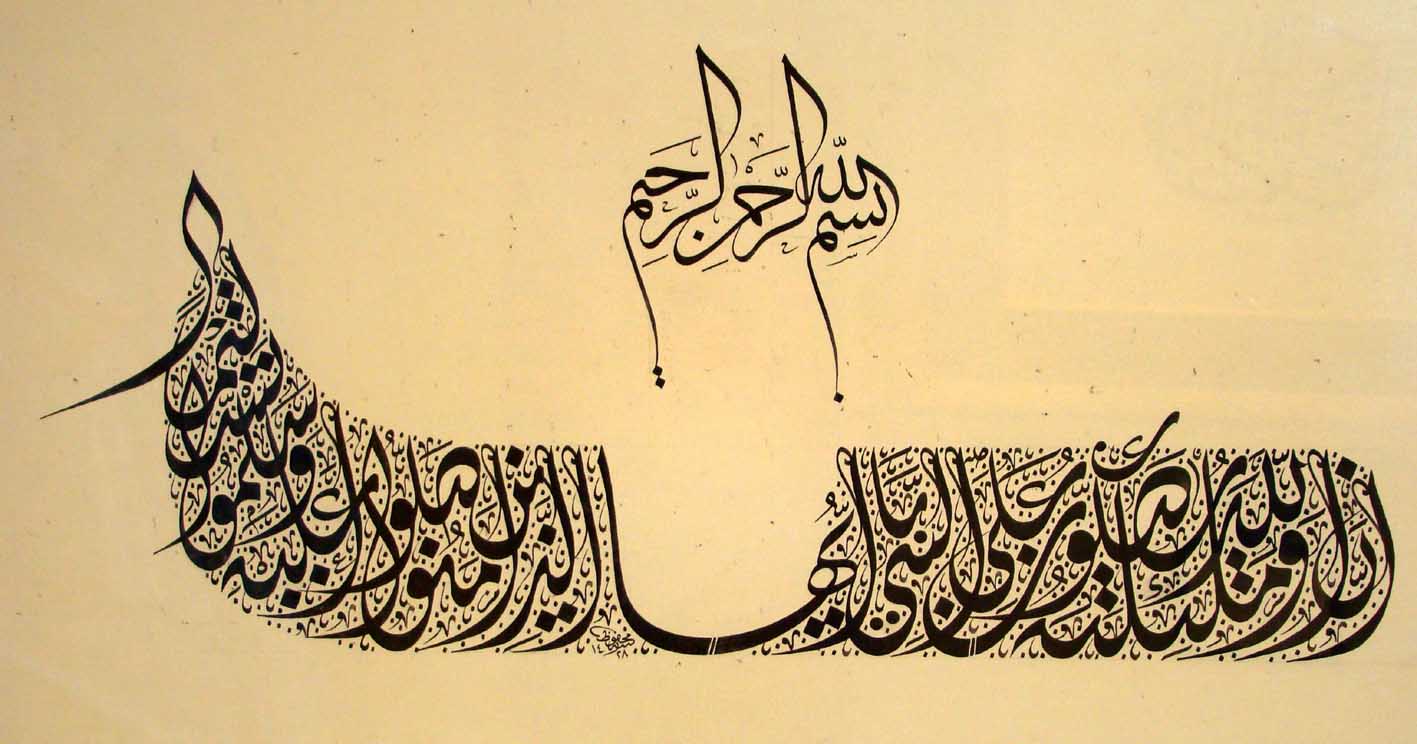 بِسْمِ اللهِ الرَّحْمٰنِ الرَّحِيمِ
إن الله وملئكته يصلون على النبي يأيها الذين أمنوا صلوا عليه وسلموا تسليما
١٤٢٨